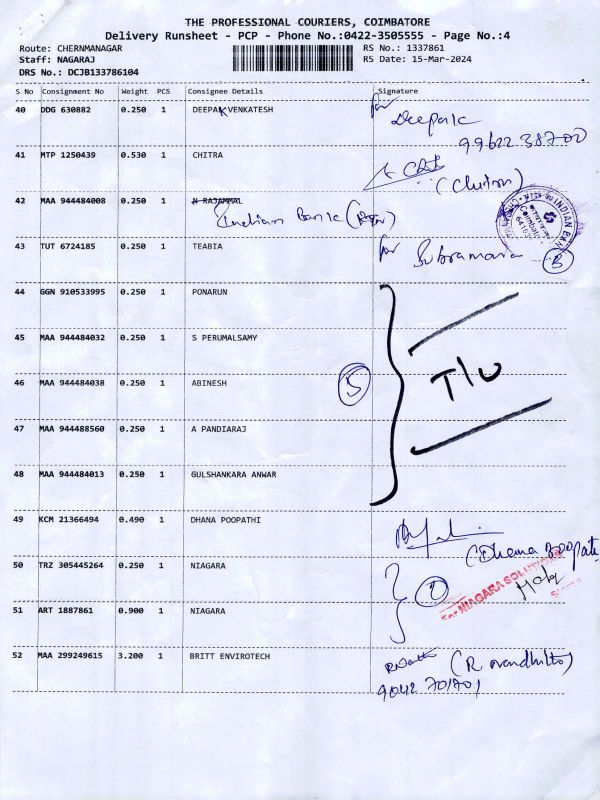 THE PROFESSIONAL COURIERS, COIMBATORE
Delivery Runsheet - PCP - Phone No.:0422-3505555 - Page No.:4
Route: CHERNMANAGAR RS No.: 1337861
Staff: NAGARAJ RS Date: 15-Mar-2024
DRS No.: DCJB133786104
S No Consignment No Weight PCS Consignee Details Signature
40 DDG 630882 0.250 1 DEEPAK VENKATESH for Deepak
9962238700
41 MTP 1250439 0.530 1 CHITRA
(Chitra)
42 MAA 944484008 0.250 1 N RAJAMMAL
Indian Bank
INDIAN BAN
43 TUT 6724185 0.250 1 TEABIA for Subramani
44 GGN 910533995 0.250 1 PONARUN
45 MAA 944484032 0.250 1 S PERUMALSAMY
46 MAA 944484038 0.250 1 ABINESH 5 T/U
47 MAA 944488560 0.250 1 A PANDIARAJ
48 MAA 944484013 0.250 1 GULSHANKARA ANWAR
49 KCM 21366494 0.490 1 DHANA POOPATHI
50 TRZ 305445264 0.250 1 NIAGARA
For NIAGARA SOLUTIONS
51 ART 1887861 0.900 1 NIAGARA
52 MAA 299249615 3.200 1 BRITT ENVIROTECH
9042 70170